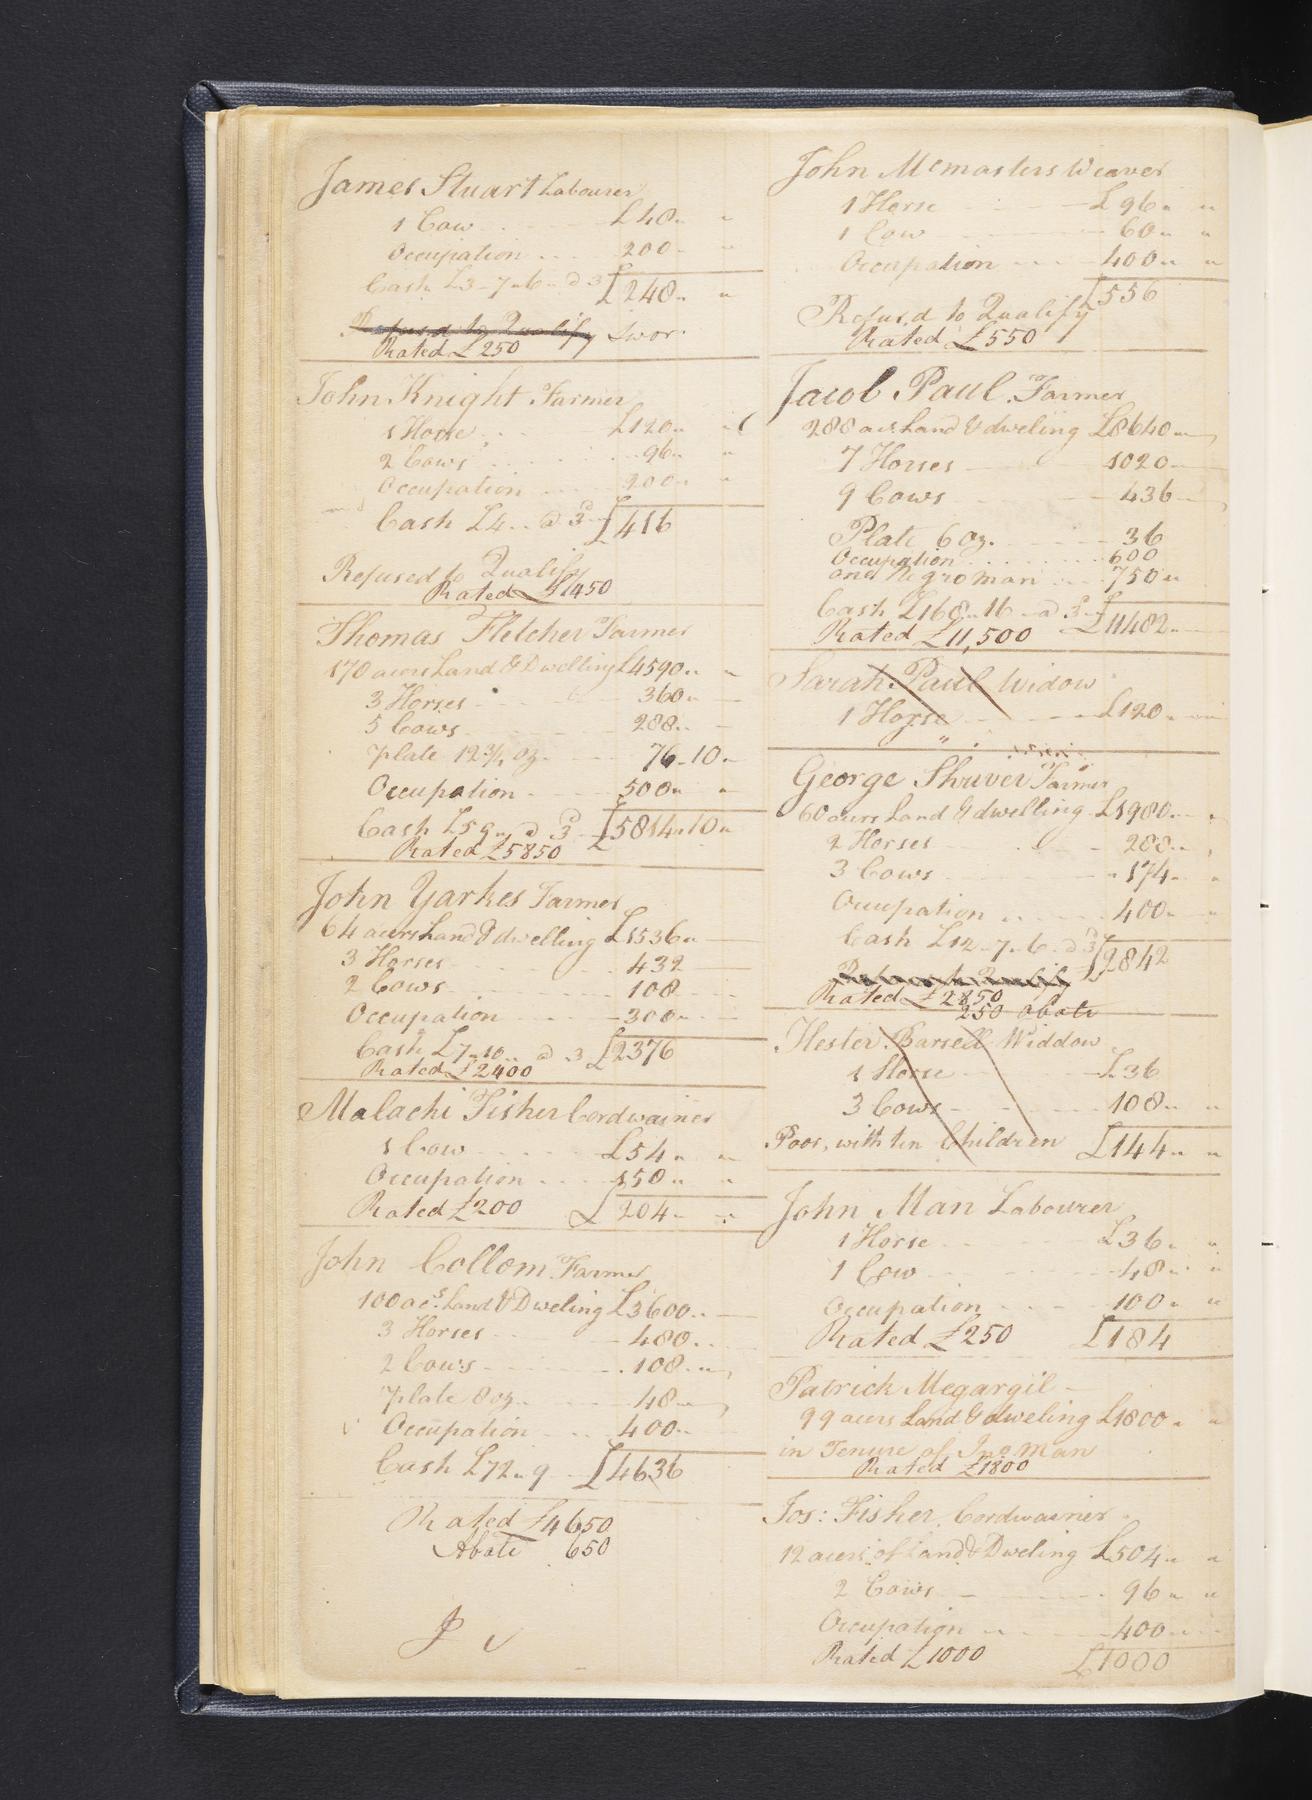 James Stuart Labourer
1 Cow £48
Occupation 200
Cash £3-7-6 @ 3 £248
Refused to Qualify Swor.
Rated £250
John Knight Farmer
1 Horse £120
2 Cows 96
Occupation 200
Cash £4 @ 3 £416
Refused to Qualify
Rated £450
Thomas Fletcher Farmer
170 acers Land & Dwelling £4590
3 Horses 360
5 Cows 288
plate 12 3/4 oz 76-10
Occupation 500
Cash £59 @ 3 £5814-10
Rated £5850
John Yarkes Farmer
64 acers Land & dwelling £1536
3 Horses 432
2 Cows 108
Occupation 300
Cash £7-10 @ 3 £2376
Rated £2400
Malachi Fisher Cordwainer
1 Cow £54
Occupation 150
Rated £200 £204
John Collom Farmer
100 acs Land & Dweling £3600
3 Horses 480
2 Cows 108
plate 8 oz 48
Occupation 400
Cash £72-9 £4636
Rated £4650
Abate 650
John Mcmasters Weaver
1 Horse £96
1 Cow 60
Occupation 400
£556
Refused to Qualify
Rated £550
Jacob Paul Farmer
288 acs Land & dweling £8640
7 Horses 1020
9 Cows 436
Plate 6 oz. 36
Occupation 600
one Negro man 750
Cash £168-16 @ 3 £11482
Rated £11,500
Sarah Paul Widow
1 Horse £120
George Shriver Farmer
60 acers Land & dwelling £1980
2 Horses 288
3 Cows 174
Occupation 400
Cash £12-7-6 @ 3 £2842
Refused to Qualify
Rated £2850
250 abate
Hester Barsell Widdow
1 Horse £36
3 Cows 108
Poor, with ten Children £144
John Man Labourer
1 Horse £36
1 Cow 48
Occupation 100
Rated £250 £184
Patrick Megargil
99 acers Land & dweling £1800
in Tenure of Jno. Man
Rated £1800
Jos: Fisher Cordwainer
12 acers of Land & Dweling £504
2 Cows 96
Occupation 400
Rated £1000 £1000